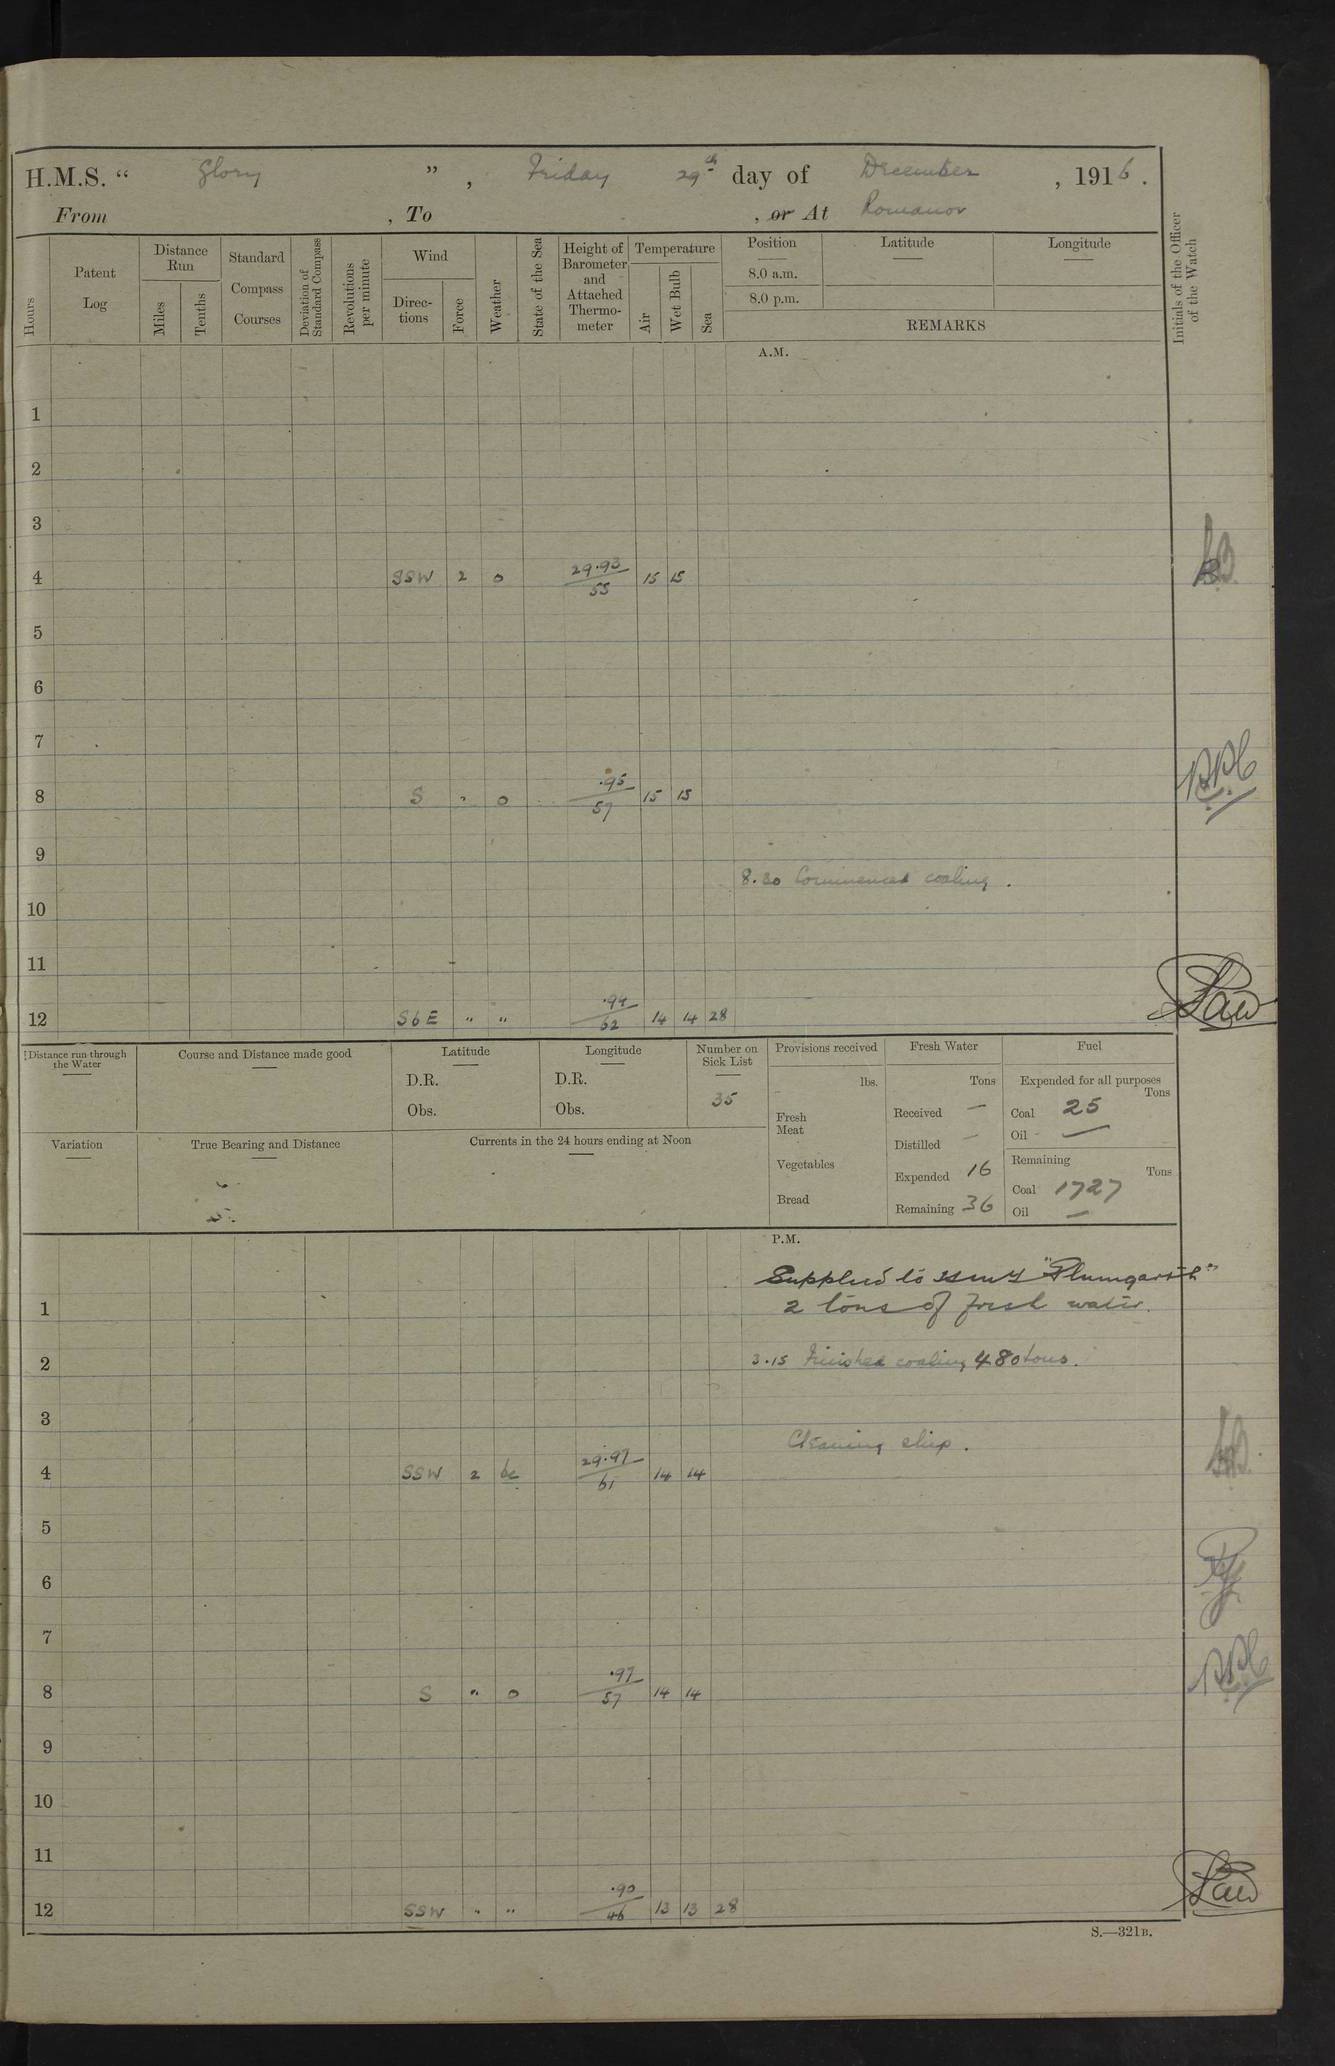 H.M.S. “ Glory ” , Friday 29th day of December , 1916 .
From , To , or At Romanov
Hours
Patent Log
Distance Run
Miles
Tenths
Standard Compass Courses
Deviation of Standard Compass
Revolutions per minute
Wind
Direc- tions
Force
Weather
State of the Sea
Height of Barometer and Attached Thermo- meter
Temperature
Air
Wet Bulb
Sea
Position
8.0 a.m.
8.0 p.m.
Latitude
Longitude
REMARKS
Initials of the Officer of the Watch
A.M.
1
2
3
4 SSW 2 o 29.93/55 15 15
5
6
7
8 S " o .95/57 15 15
9
8.30 Commenced coaling .
10
11
12 SbE " " .94/62 14 14 28
Distance run through the Water
Course and Distance made good
Latitude
D.R.
Obs.
Longitude
D.R.
Obs.
Number on Sick List
35
Provisions received
lbs.
Fresh Meat
Vegetables
Bread
Fresh Water
Tons
Received —
Distilled —
Expended 16
Remaining 36
Fuel
Expended for all purposes
Tons
Coal 25
Oil —
Remaining
Tons
Coal 1727
Oil —
Variation
True Bearing and Distance
Currents in the 24 hours ending at Noon
P.M.
Supplied to HMY "Plumgarth"
1 2 tons of fresh water.
2 3.15 Finished coaling 480 tons.
3
Cleaning ship .
4 SSW 2 bc 29.97/61 14 14
5
6
7
8 S " o .97/57 14 14
9
10
11
12 SSW " " .90/46 13 13 28
S.—321B.